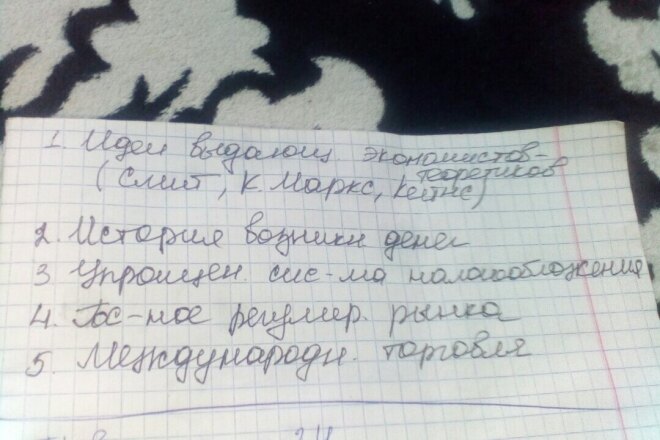 1. Идеи выдающ. экономистов-
теоретиков
(Смит, К. Маркс, Кейнс)
2. История возникн денег
3 Упрощен. сис-ма налогообложения
4. Гос-ное регулир. рынка
5. Международн. торговля